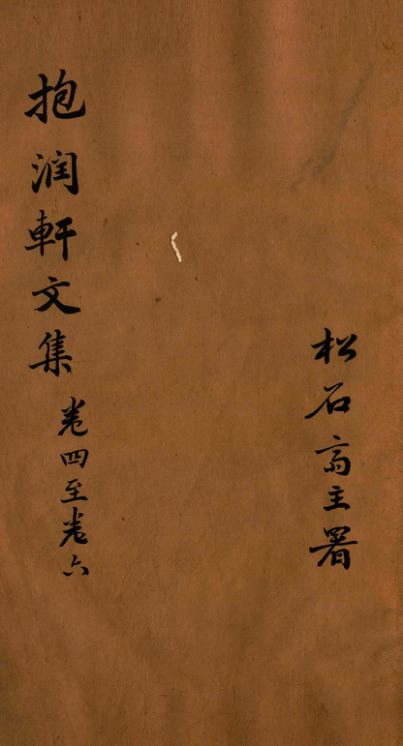 抱润軒文集
卷四至卷六
松石斋主署